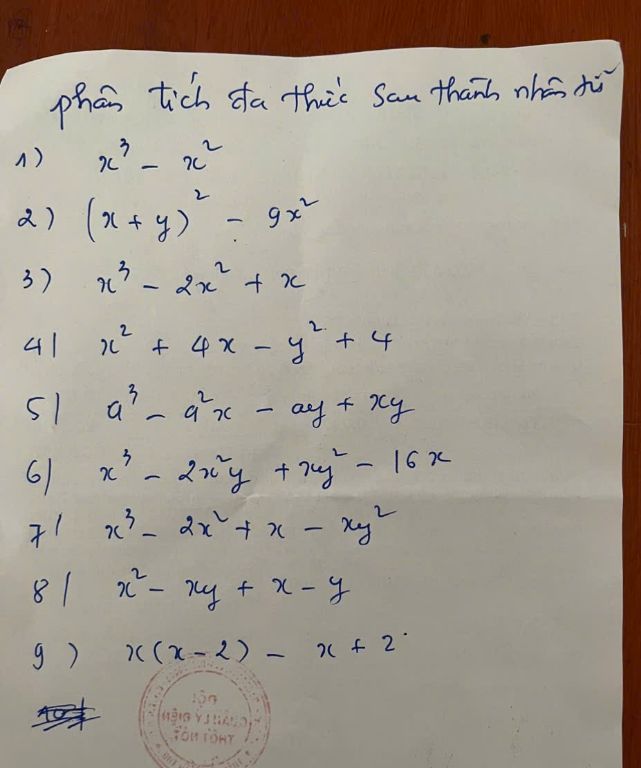 phân tích đa thức sau thành nhân tử
1) x³ - x²
2) (x + y)² - 9x²
3) x³ - 2x² + x
4) x² + 4x - y² + 4
5) a³ - a²x - ay + xy
6) x³ - 2x²y + xy² - 16x
7) x³ - 2x² + x - xy²
8) x² - xy + x - y
9) x(x - 2) - x + 2
ĐỘI
QUẢN LÝ ĐIỆN
THỐT NỐT